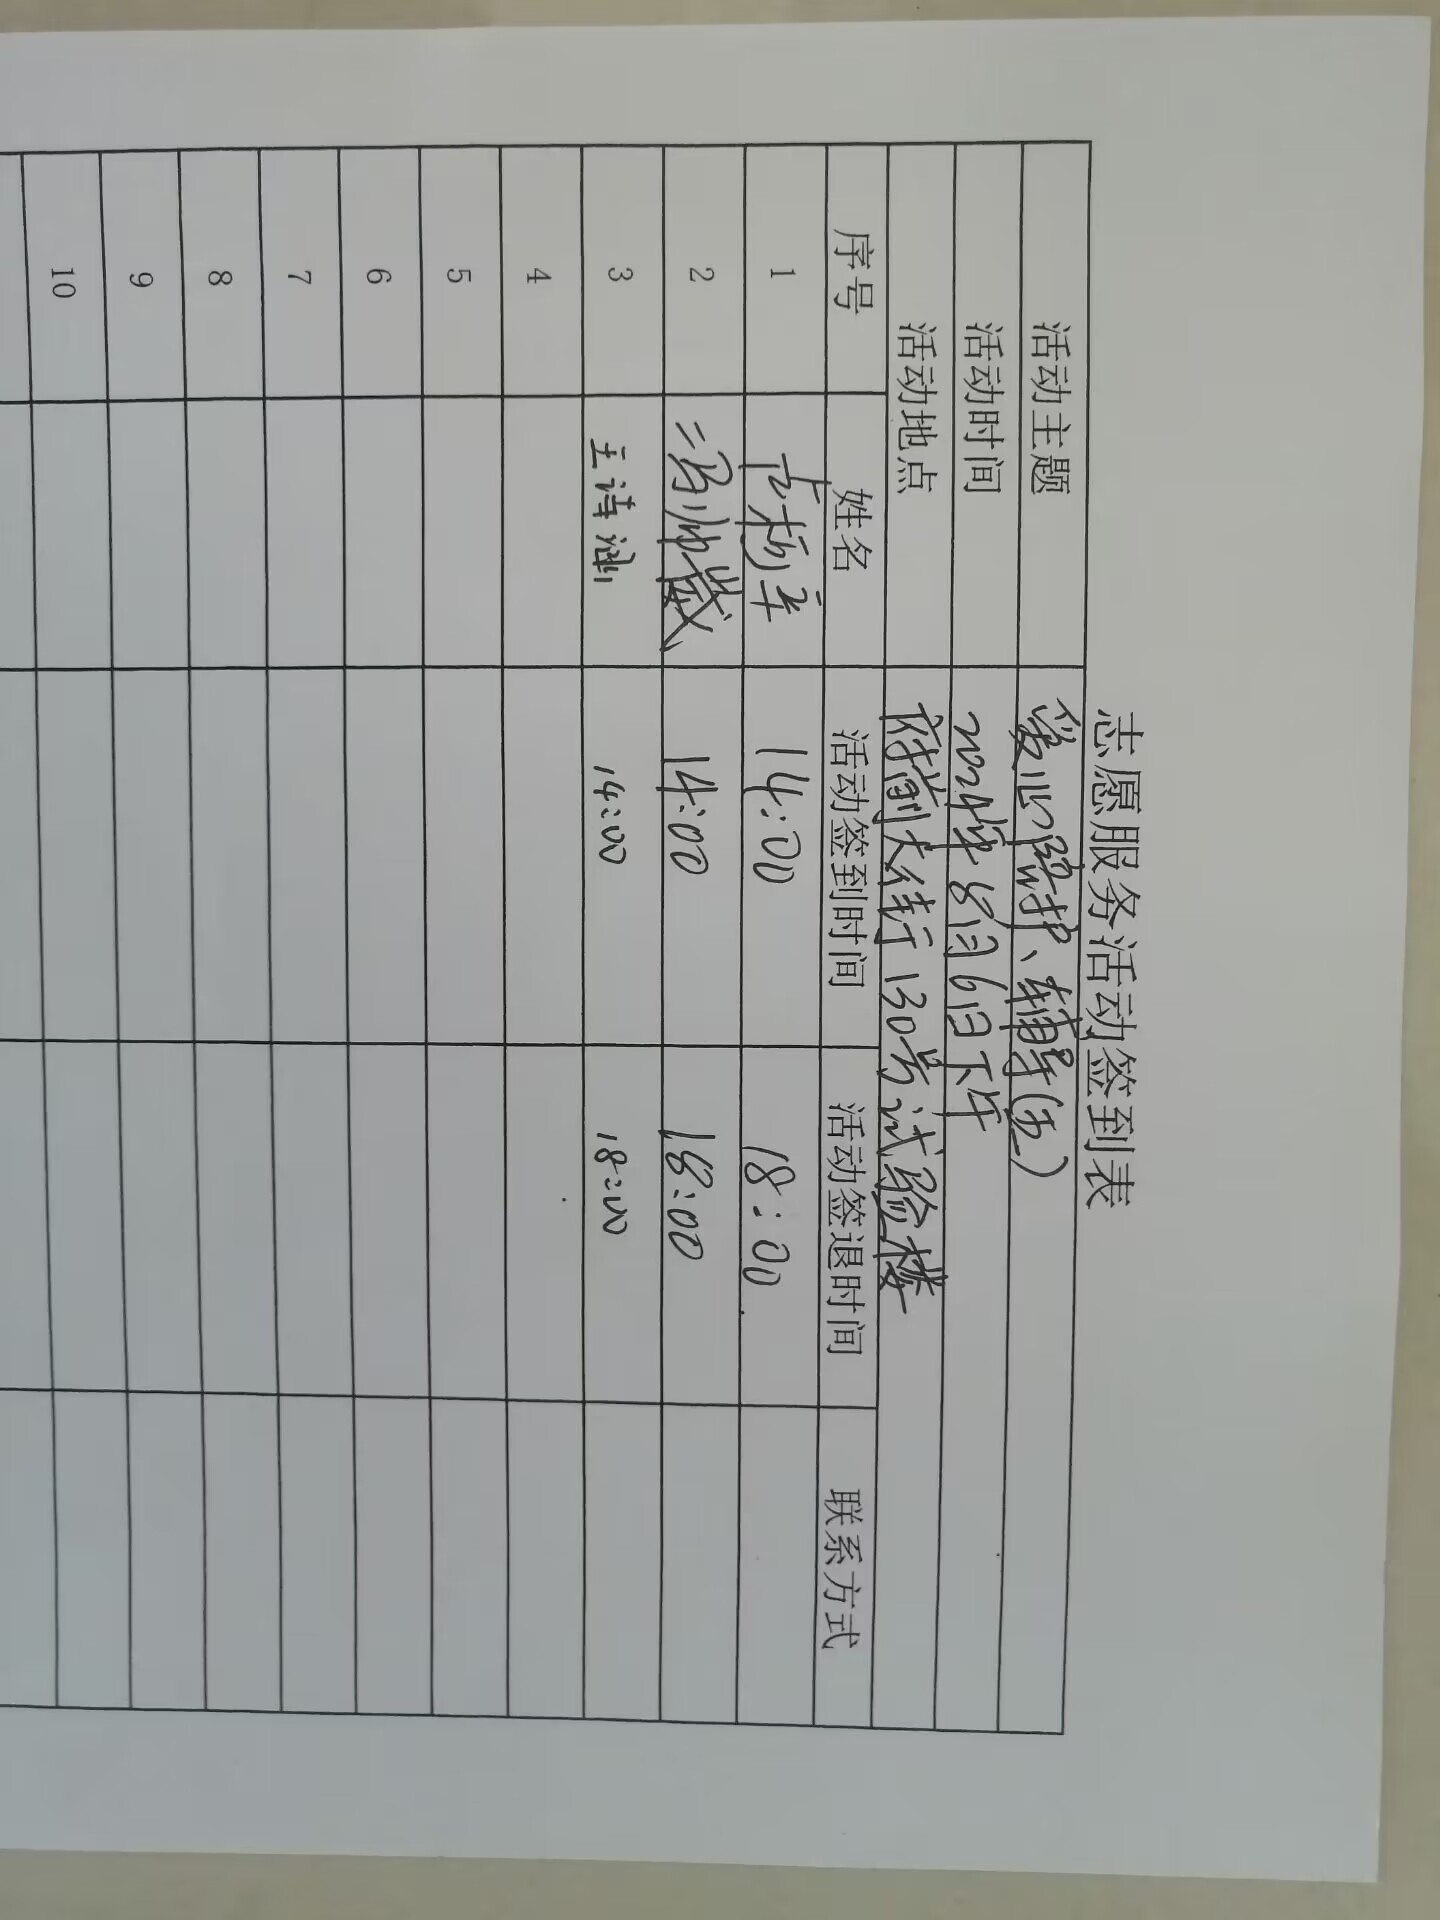 志愿服务活动签到表
活动主题 爱心陪护、辅导(五)
活动时间 2024年8月6日下午
活动地点 府前大街130号试验楼
序号 姓名 活动签到时间 活动签退时间 联系方式
1 14:00 18:00
2 14:00 18:00
3 王诗涵 14:00 18:00
4
5
6
7
8
9
10